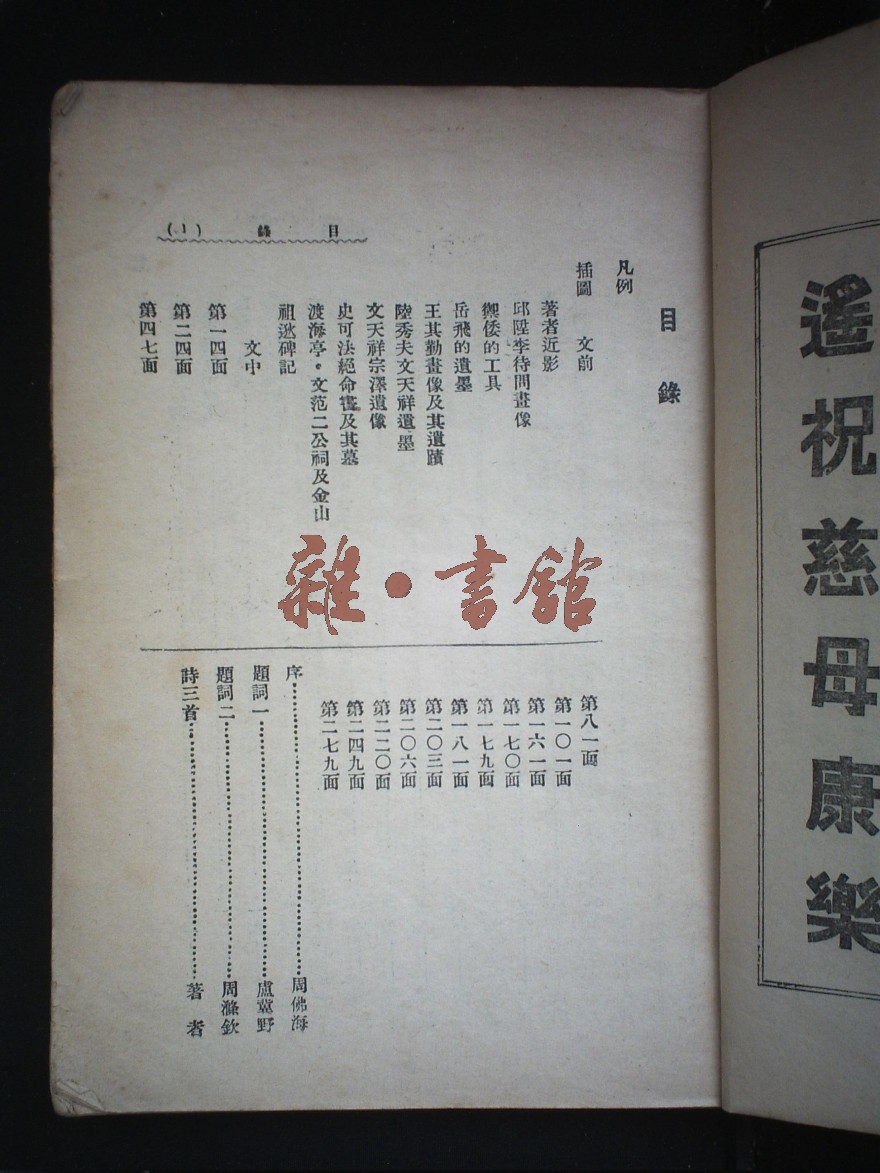 遙祝慈母康樂
目錄
凡例
插圖 文前
著者近影
邱陞李待問畫像
禦倭的工具
岳飛的遺墨
王其勤畫像及其遺蹟
陸秀夫文天祥遺墨
文天祥宗澤遺像
史可法絕命書及其墓
渡海亭。文范二公祠及金山
祖逖碑記
文中
第一四面
第二四面
第四七面
目錄 (1)
第八一面
第一〇一面
第一六一面
第一七〇面
第一七九面
第一八一面
第二〇三面
第二〇六面
第二二〇面
第二四九面
第二七九面
序……周佛海
題詞一……盧冀野
題詞二……周滌欽
詩三首……著者
雜·書館